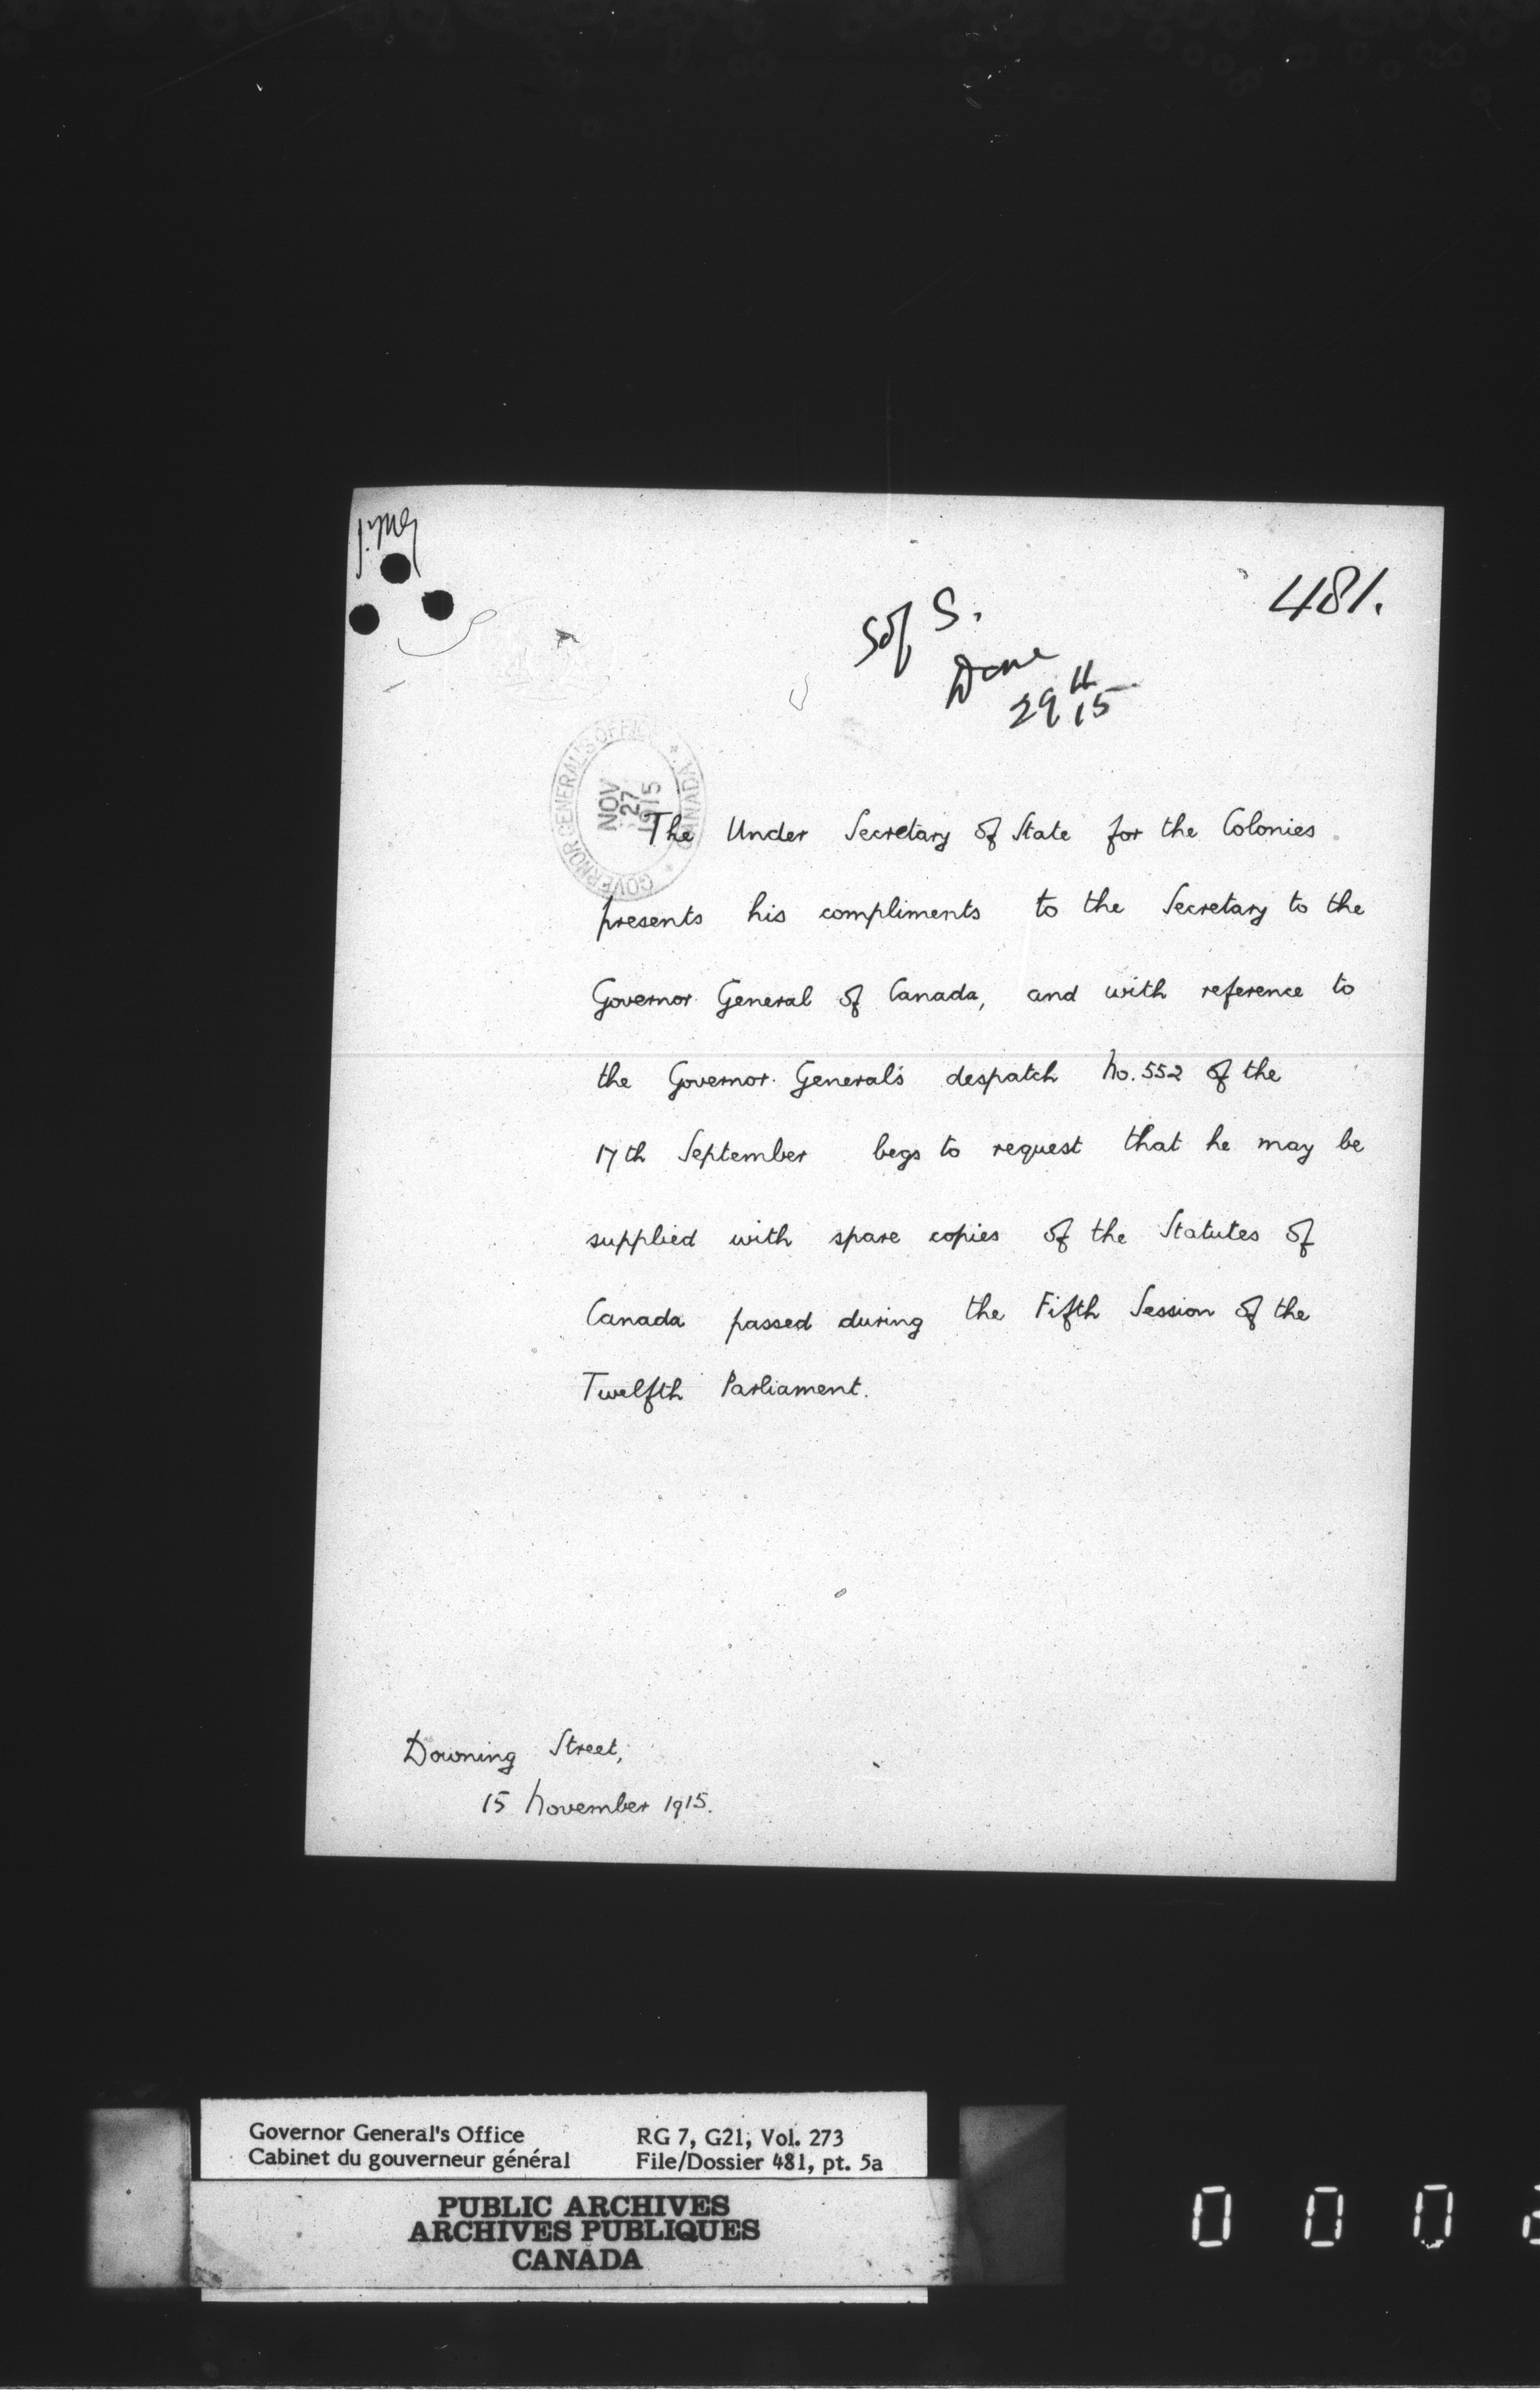 481.
S of S.
Done
29 11 15
GOVERNOR GENERAL'S OFFICE * CANADA *
NOV
27
1915
The Under Secretary of State for the Colonies
presents his compliments to the Secretary to the
Governor General of Canada, and with reference to
the Governor General's despatch No. 552 of the
17th September begs to request that he may be
supplied with spare copies of the Statutes of
Canada passed during the Fifth Session of the
Twelfth Parliament.
Downing Street,
15 November 1915.
Governor General's Office
Cabinet du gouverneur général
RG 7, G21, Vol. 273
File/Dossier 481, pt. 5a
PUBLIC ARCHIVES
ARCHIVES PUBLIQUES
CANADA
0 0 0